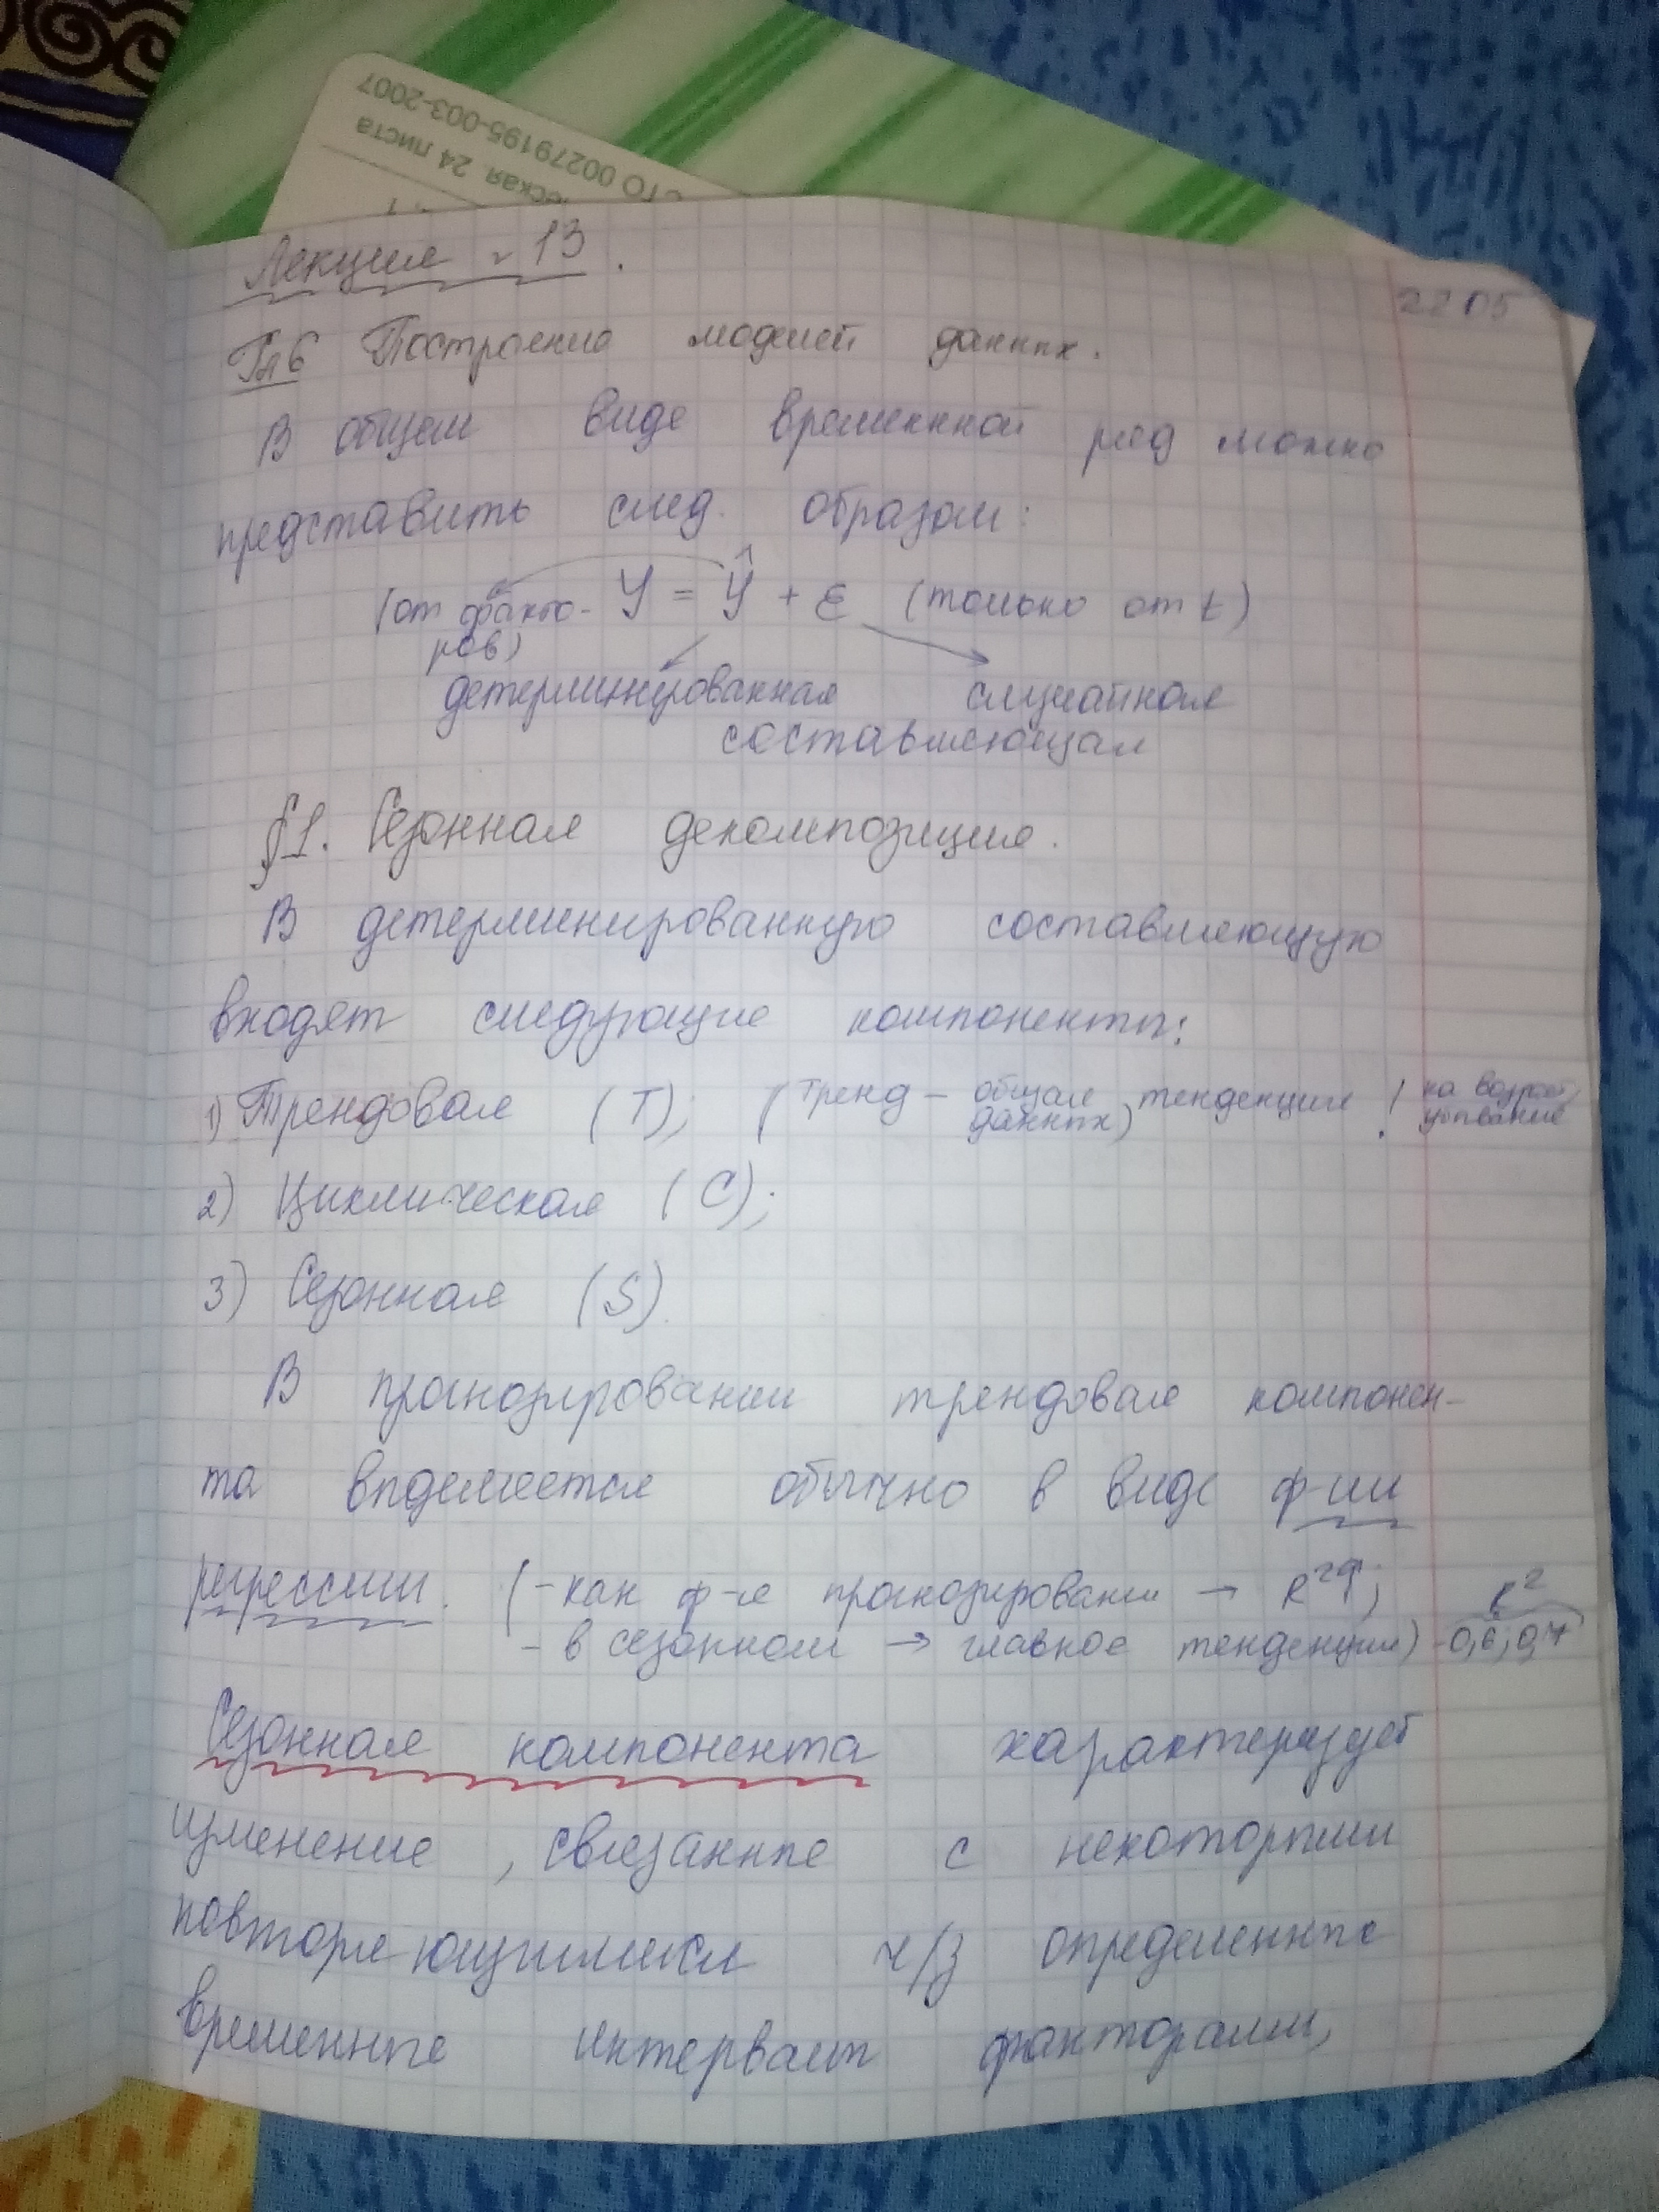 СТО 00279195-003-2007
ская. 24 листа
Лекция 13.
22 05
Гл 6 Построение моделей данных.
В общем виде временной ряд можно
представить след. образом:
(от факто- У = Ŷ + ε (только от t)
ров)
детерминированная случайная
составляющая
§1. Сезонная декомпозиция.
В детерминированную составляющую
входят следующие компоненты:
1) Трендовая (Т); (Тренд - общая тенденция ! на возраст,
данных) убывание
2) Циклическая (С);
3) Сезонная (S).
В прогнозировании трендовая компонен-
та выделяется обычно в виде ф-ии
регрессии. (-как ф-я прогнозировании → R²; R²
- в сезонном → главное тенденция) 0,6; 0,7
Сезонная компонента характеризует
изменение, связанные с некоторыми
повторяющимися ч/з определенные
временные интервалы факторами,